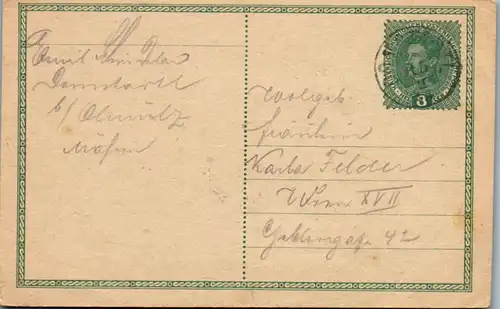 Emil Schindler
Domstadtl
b/ Olmütz
Mähren
Wolgeb.
Fräulein
Karla Felder
Wien XVII
42
8